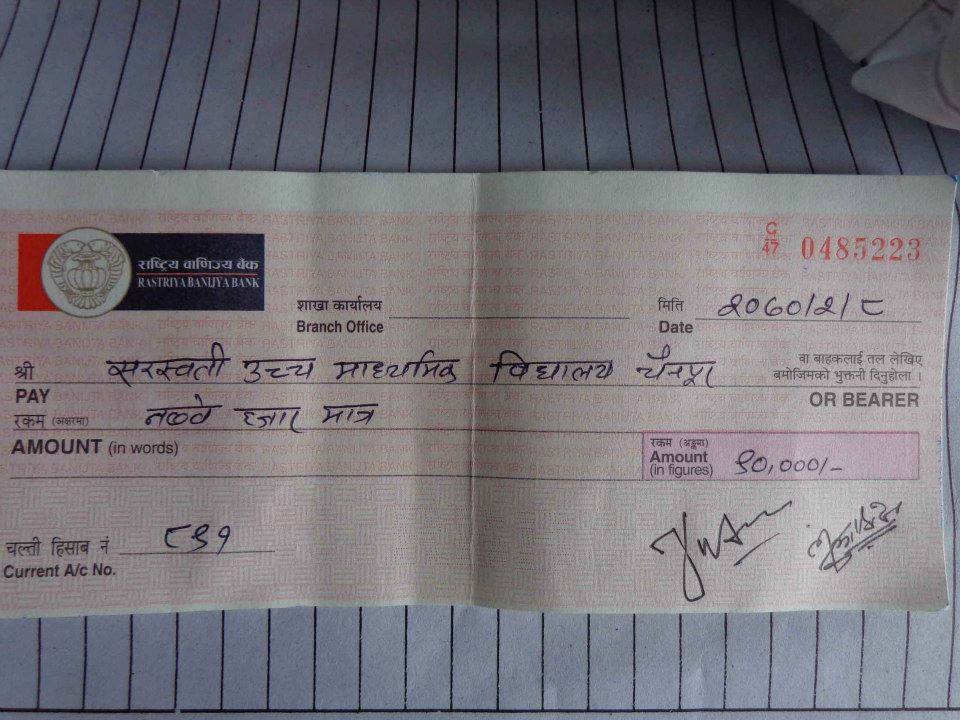 C
47 0485223
राष्ट्रिय वाणिज्य बैंक
RASTRIYA BANIJYA BANK
शाखा कार्यालय
Branch Office
मिति २०६०/२/८
Date
श्री सरस्वती उच्च माध्यमिक विद्यालय चैनपुर
PAY
वा बाहकलाई तल लेखिए
बमोजिमको भुक्तनी दिनुहोला ।
OR BEARER
रकम (अक्षरमा) नब्बे हजार मात्र
AMOUNT (in words)
रकम (अङ्कमा)
Amount
(in figures) ९०,०००/-
चल्ती हिसाब नं ८९१
Current A/c No.